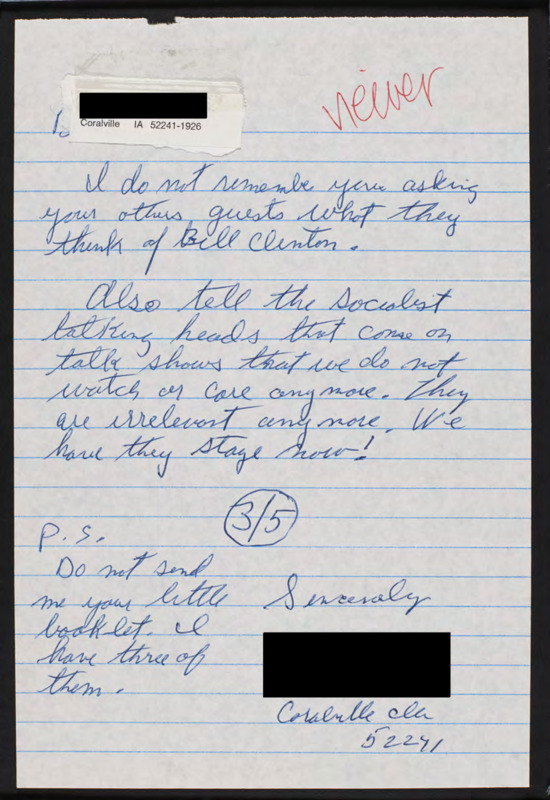 viewer
Coralville IA 52241-1926
I do not remembe your asking
your others guests what they
think of Bill Clinton.
Also tell the socialist
talking heads that come on
talk shows that we do not
watch or care anymore. They
are irrelevant anymore. We
have they stage now!
3/5
P.S.
Do not send
me your little
booklet. I
have three of
them.
Sincerely
Coralville
52241